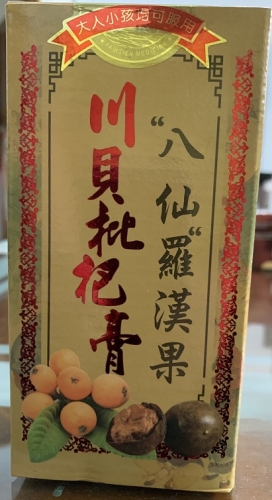 大人小孩均可服用
"八仙"羅漢果
川貝枇杷膏